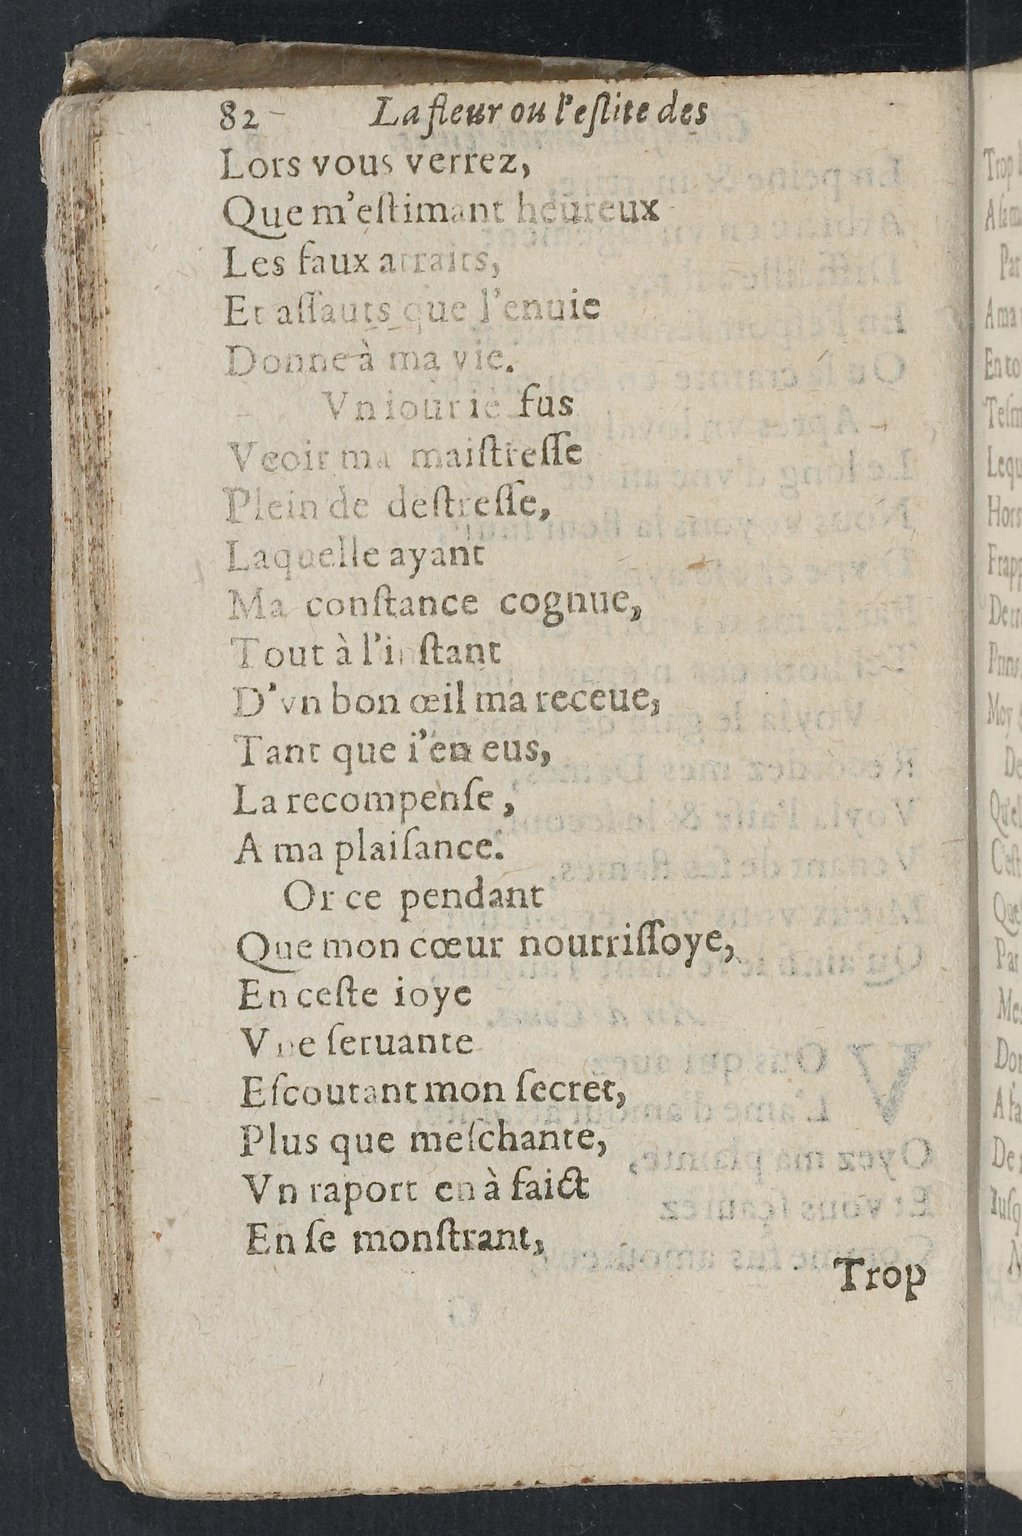 82 La fleur ou l'eſlite des
Lors vous verrez,
Que m'eſtimant heureux
Les faux atraits,
Et aſſauts que l'enuie
Donne à ma vie.
Vn iour ie fus
Veoir ma maiſtreſſe
Plein de deſtreſſe,
Laquelle ayant
Ma conſtance cognue,
Tout à l'inſtant
D'vn bon œil ma receue,
Tant que i'en eus,
La recompenſe,
A ma plaiſance.
Or ce pendant
Que mon cœur nourriſſoye,
En ceſte ioye
Vne ſeruante
Eſcoutant mon ſecret,
Plus que meſchante,
Vn raport en à faict
En ſe monſtrant,
Trop